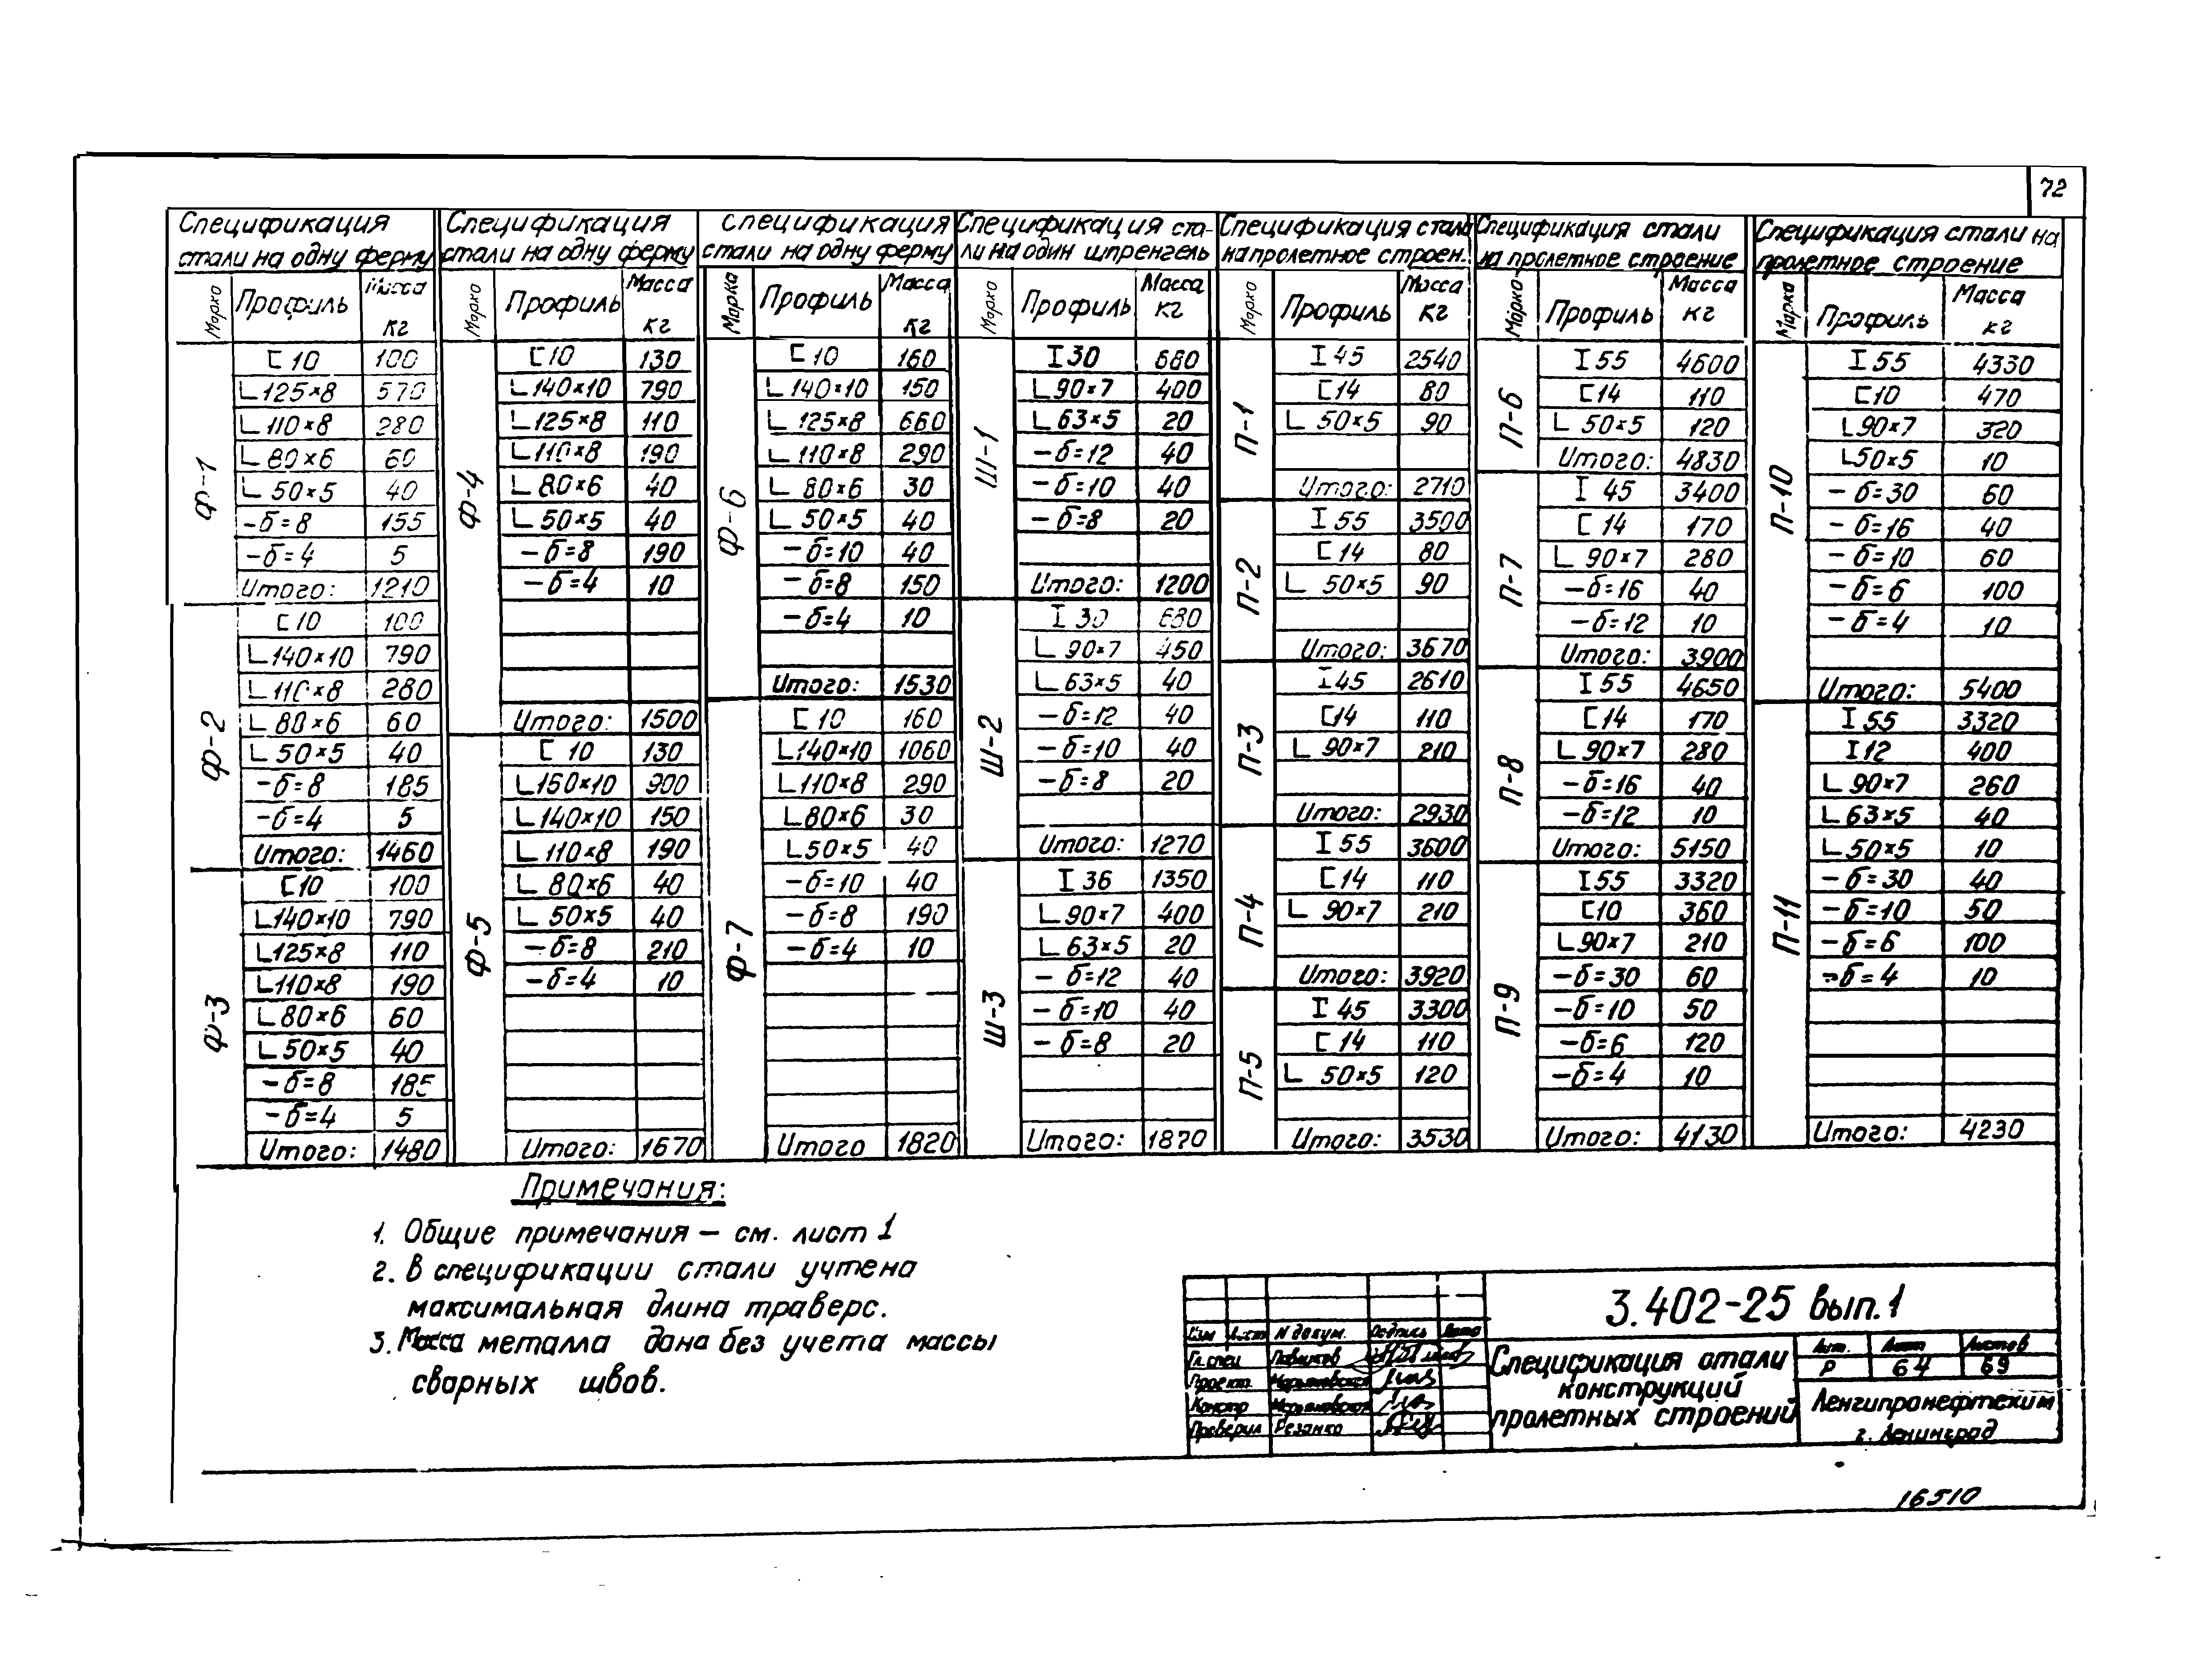 72
Спецификация
стали на одну ферму
Марка Профиль Масса кг
Ф-1
[ 10 100
∟125×8 570
∟110×8 280
∟80×6 60
∟50×5 40
-б=8 155
-б=4 5
Итого: 1210
Ф-2
[ 10 100
∟140×10 790
∟110×8 280
∟80×6 60
∟50×5 40
-б=8 185
-б=4 5
Итого: 1460
Ф-3
[ 10 100
∟140×10 790
∟125×8 110
∟110×8 190
∟80×6 60
∟50×5 40
-б=8 185
-б=4 5
Итого: 1480
Спецификация
стали на одну ферму
Марка Профиль Масса кг
Ф-4
[ 10 130
∟140×10 790
∟125×8 110
∟110×8 190
∟80×6 40
∟50×5 40
-б=8 190
-б=4 10
Итого: 1500
Ф-5
[ 10 130
∟160×10 900
∟140×10 150
∟110×8 190
∟80×6 40
∟50×5 40
-б=8 210
-б=4 10
Итого: 1670
Спецификация
стали на одну ферму
Марка Профиль Масса кг
Ф-6
[ 10 160
∟140×10 150
∟125×8 660
∟110×8 290
∟80×6 30
∟50×5 40
-б=10 40
-б=8 150
-б=4 10
Итого: 1530
Ф-7
[ 10 160
∟140×10 1060
∟110×8 290
∟80×6 30
∟50×5 40
-б=10 40
-б=8 190
-б=4 10
Итого 1820
Спецификация ста-
ли на один шпренгель
Марка Профиль Масса кг
Ш-1
I 30 680
∟90×7 400
∟63×5 20
-б=12 40
-б=10 40
-б=8 20
Итого: 1200
Ш-2
I 30 680
∟90×7 450
∟63×5 40
-б=12 40
-б=10 40
-б=8 20
Итого: 1270
Ш-3
I 36 1350
∟90×7 400
∟63×5 20
-б=12 40
-б=10 40
-б=8 20
Итого: 1870
Спецификация стали
на пролетное строен.
Марка Профиль Масса кг
П-1
I 45 2540
[ 14 80
∟50×5 90
Итого: 2710
П-2
I 55 3500
[ 14 80
∟50×5 90
Итого: 3670
П-3
I 45 2610
[ 14 110
∟90×7 210
Итого: 2930
П-4
I 55 3600
[ 14 110
∟90×7 210
Итого: 3920
П-5
I 45 3300
[ 14 110
∟50×5 120
Итого: 3530
Спецификация стали
на пролетное строение
Марка Профиль Масса кг
П-6
I 55 4600
[ 14 110
∟50×5 120
Итого: 4830
П-7
I 45 3400
[ 14 170
∟90×7 280
-б=16 40
-б=12 10
Итого: 3900
П-8
I 55 4650
[ 14 170
∟90×7 280
-б=16 40
-б=12 10
Итого: 5150
П-9
I 55 3320
[ 10 360
∟90×7 210
-б=30 60
-б=10 50
-б=6 120
-б=4 10
Итого: 4130
Спецификация стали на
пролетное строение
Марка Профиль Масса кг
П-10
I 55 4330
[ 10 470
∟90×7 320
∟50×5 10
-б=30 60
-б=16 40
-б=10 60
-б=6 100
-б=4 10
Итого: 5400
П-11
I 55 3320
I 12 400
∟90×7 260
∟63×5 40
∟50×5 10
-б=30 40
-б=10 50
-б=6 100
-б=4 10
Итого: 4230
Примечания:
1. Общие примечания – см. лист 1
2. В спецификации стали учтена
максимальная длина траверс.
3. Масса металла дана без учета массы
сварных швов.
3.402-25 вып.1
Изм Лист N докум. Подпись Дата
Гл.спец Павликов
Проект. Марьяновская
Констр Марьяновская
Проверил Резанко
Спецификация стали
конструкций
пролетных строений
Лит. Лист Листов
Р 64 69
Ленгипронефтехим
г. Ленинград
16510